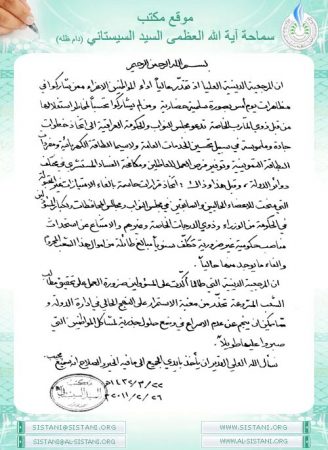 موقع مكتب
سماحة آية الله العظمى السيد السيستاني (دام ظله)
بسم الله الرحمن الرحيم
ان المرجعية الدينية العليا اذ تقدّر عالياً اداء المواطنين الاعزاء ممن شاركوا في
مظاهرات يوم أمس بصورة سلمية حضارية وممن لم يشاركوا تحسباً لمخاطر استغلالها
من قبل ذوي المآرب الخاصة تدعو مجلس النواب والحكومة العراقية الى اتخاذ خطوات
جادة وملموسة في سبيل تحسين الخدمات العامة ولاسيما الطاقة الكهربائية ومفردات
البطاقة التموينية وتوفير فرص العمل للعاطلين ومكافحة الفساد المستشري في مختلف
دوائر الدولة، وقبل هذا وذاك اتخاذ قرارات حاسمة بالغاء الامتيازات غير المقبولة
التي منحت للاعضاء الحاليين والسابقين في مجلس النواب ومجالس المحافظات ولكبار المسؤولين
في الحكومة من الوزراء وذوي الدرجات الخاصة وغيرهم والامتناع عن استحداث
مناصب حكومية غير ضرورية تكلّف سنوياً مبالغ طائلة من اموال هذا الشعب المحروم
والغاء ما يوجد منها حالياً.
ان المرجعية الدينية التي طالما أكدت على المسؤولين ضرورة العمل على تحقيق مطالب
الشعب المشروعة تحذّر من مغبّة الاستمرار على النهج الحالي في إدارة الدولة و
مما يمكن ان ينجم عن عدم الاسراع في وضع حلول جذرية لمشاكل المواطنين التي
صبروا عليها طويلاً.
نسأل الله العلي القدير ان يأخذ بأيدي الجميع الى ما فيه الخير والصلاح انه سميع مجيب
٢٢/٣/١٤٣٢هـ
٢٦/٢/٢٠١١م
مكتب
السيد السيستاني
SISTANI@SISTANI.ORG
WWW.SISTANI.ORG
SISTANI@AL-SISTANI.ORG
WWW.AL-SISTANI.ORG